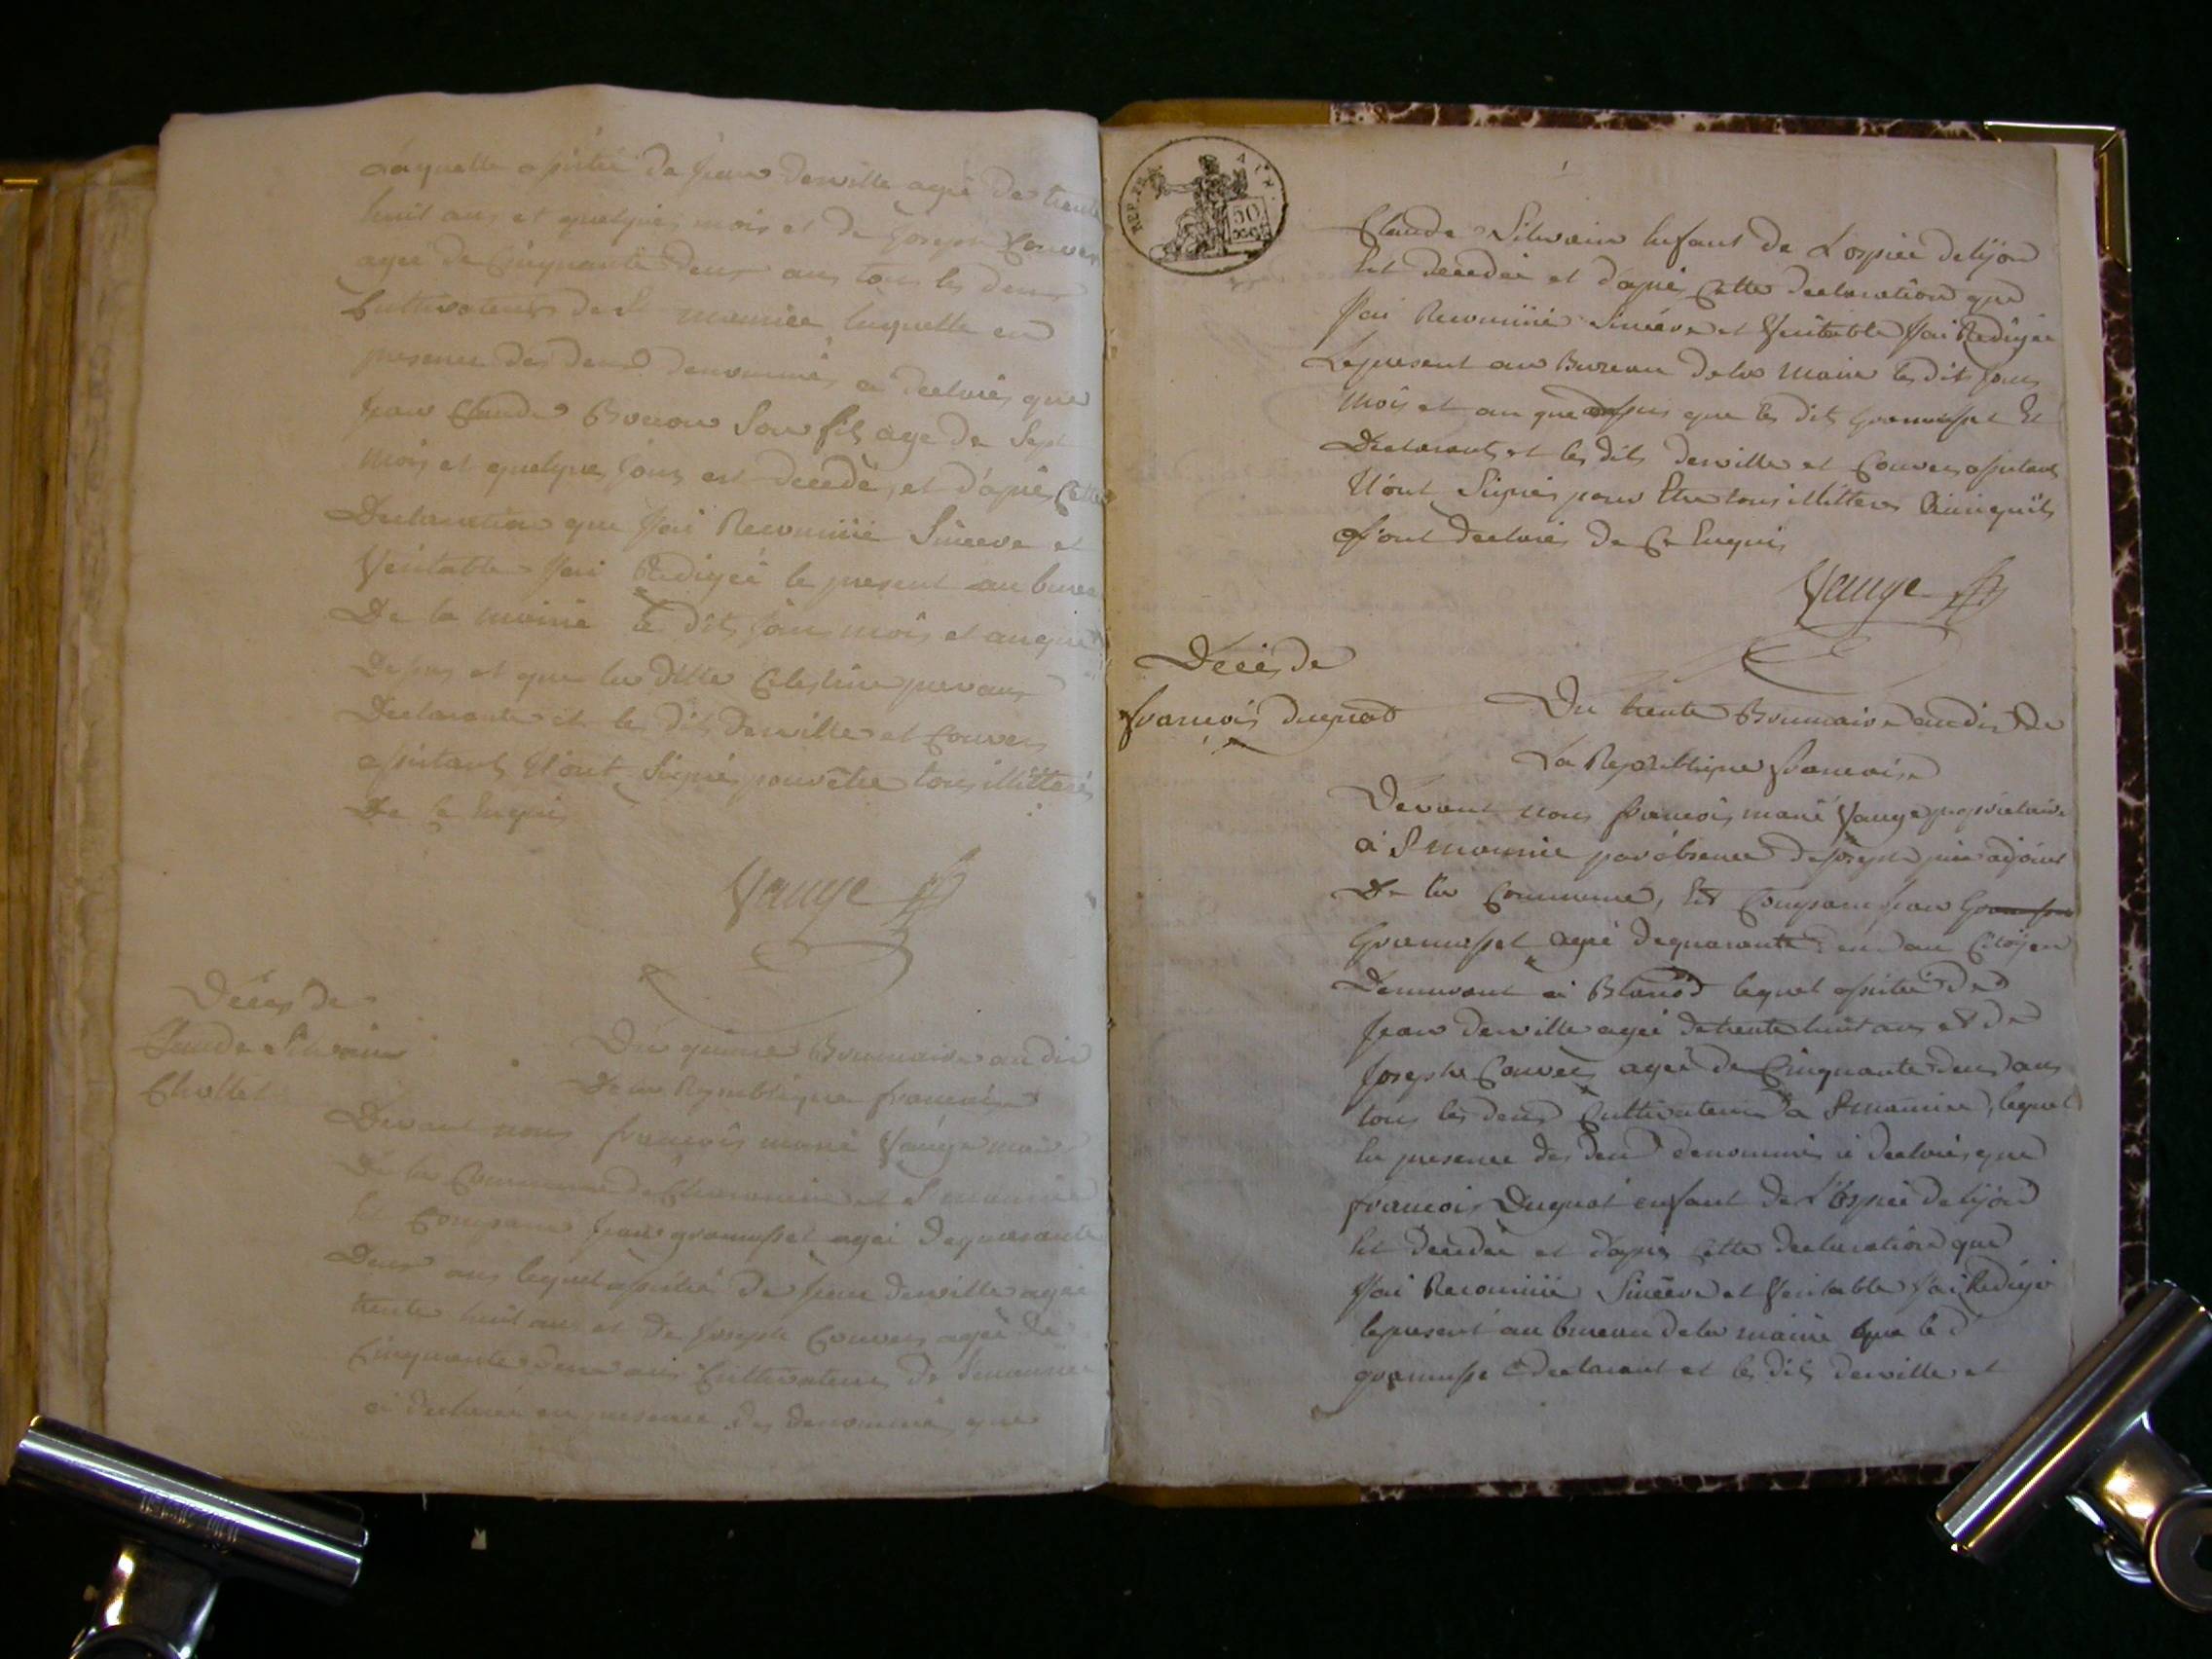 Laquelle assistée de jean derville agée de trente
huit ans et quelques mois et de joseph Couver
agée de Cinquante deux ans tous les deux
Cultivateurs de St mamice laquelle en
presence des deux denommés a declarés que
jean Claude Son fils age de Sept
mois et quelques jours est decedè, et d'après Cette
Declaration que j'ai Reconnüe Sincere et
Veritable j'ai Redigée le present au burea
De la mairie le dits jour mois et an que
Depus et que la ditte Celestine
Declarante et les dits derville et Couvers
assistants N'ont Signés pour être tous illittérés
De Ce Enquis
Vauge
Décès de
Claude Silvain
Chollet
Du quinze Brumaire an dix
De la Republique francaise
Devant nous francois marie Vauge maire
De la Commune de et St mamice
Est Comparu jean gramusset agée de quarante
Deux ans lequel assistée de jean derville agée
trente huit ans et de joseph Couvers agée de
Cinquante deux ans Cultivateurs de St mamice
a declarée en presence des denommés que
REP. FRA
50
Claude Silvain Enfant de L'ospice de lijon
Est decedée et d'apres Cette declaration que
j'ai Reconnüe Sincere et Veritable j'ai Redigée
Le present au Bureau de la mairie les dits jour
mois et an que dessus que les dits gramusset Et
Declarants et les dits derville et Couvers assistans
N'ont Signés pour Etre tous illitteres Ainsi quils
L'ont declarés de Ce Enquis
Vauge
Décès de
francois duquat
Du trente Brumaire an dix De
La Republique francaise
Devant nous francois marie Vauge proprietaire
à St mamice par absence de joseph adjoint
De la Commune, Est Comparu jean
Gramusset agée de quarante deux ans Citoyen
Demeurant à Blanod lequel assistée de
jean derville agée de trente huit ans et de
joseph Couvers agée de Cinquante deux ans
tous les deux Cultivateurs a St mamice, lequel
En presence des deux denommés à declarés que
francois Duquat enfant de L'Ospice de lijon
Est decedée et d'apres Cette declaration que
j'ai Reconnüe Sincere et Veritable j'ai Redigé
le present au bureau de la mairie que le d
gramusse declarant et les dits derville et